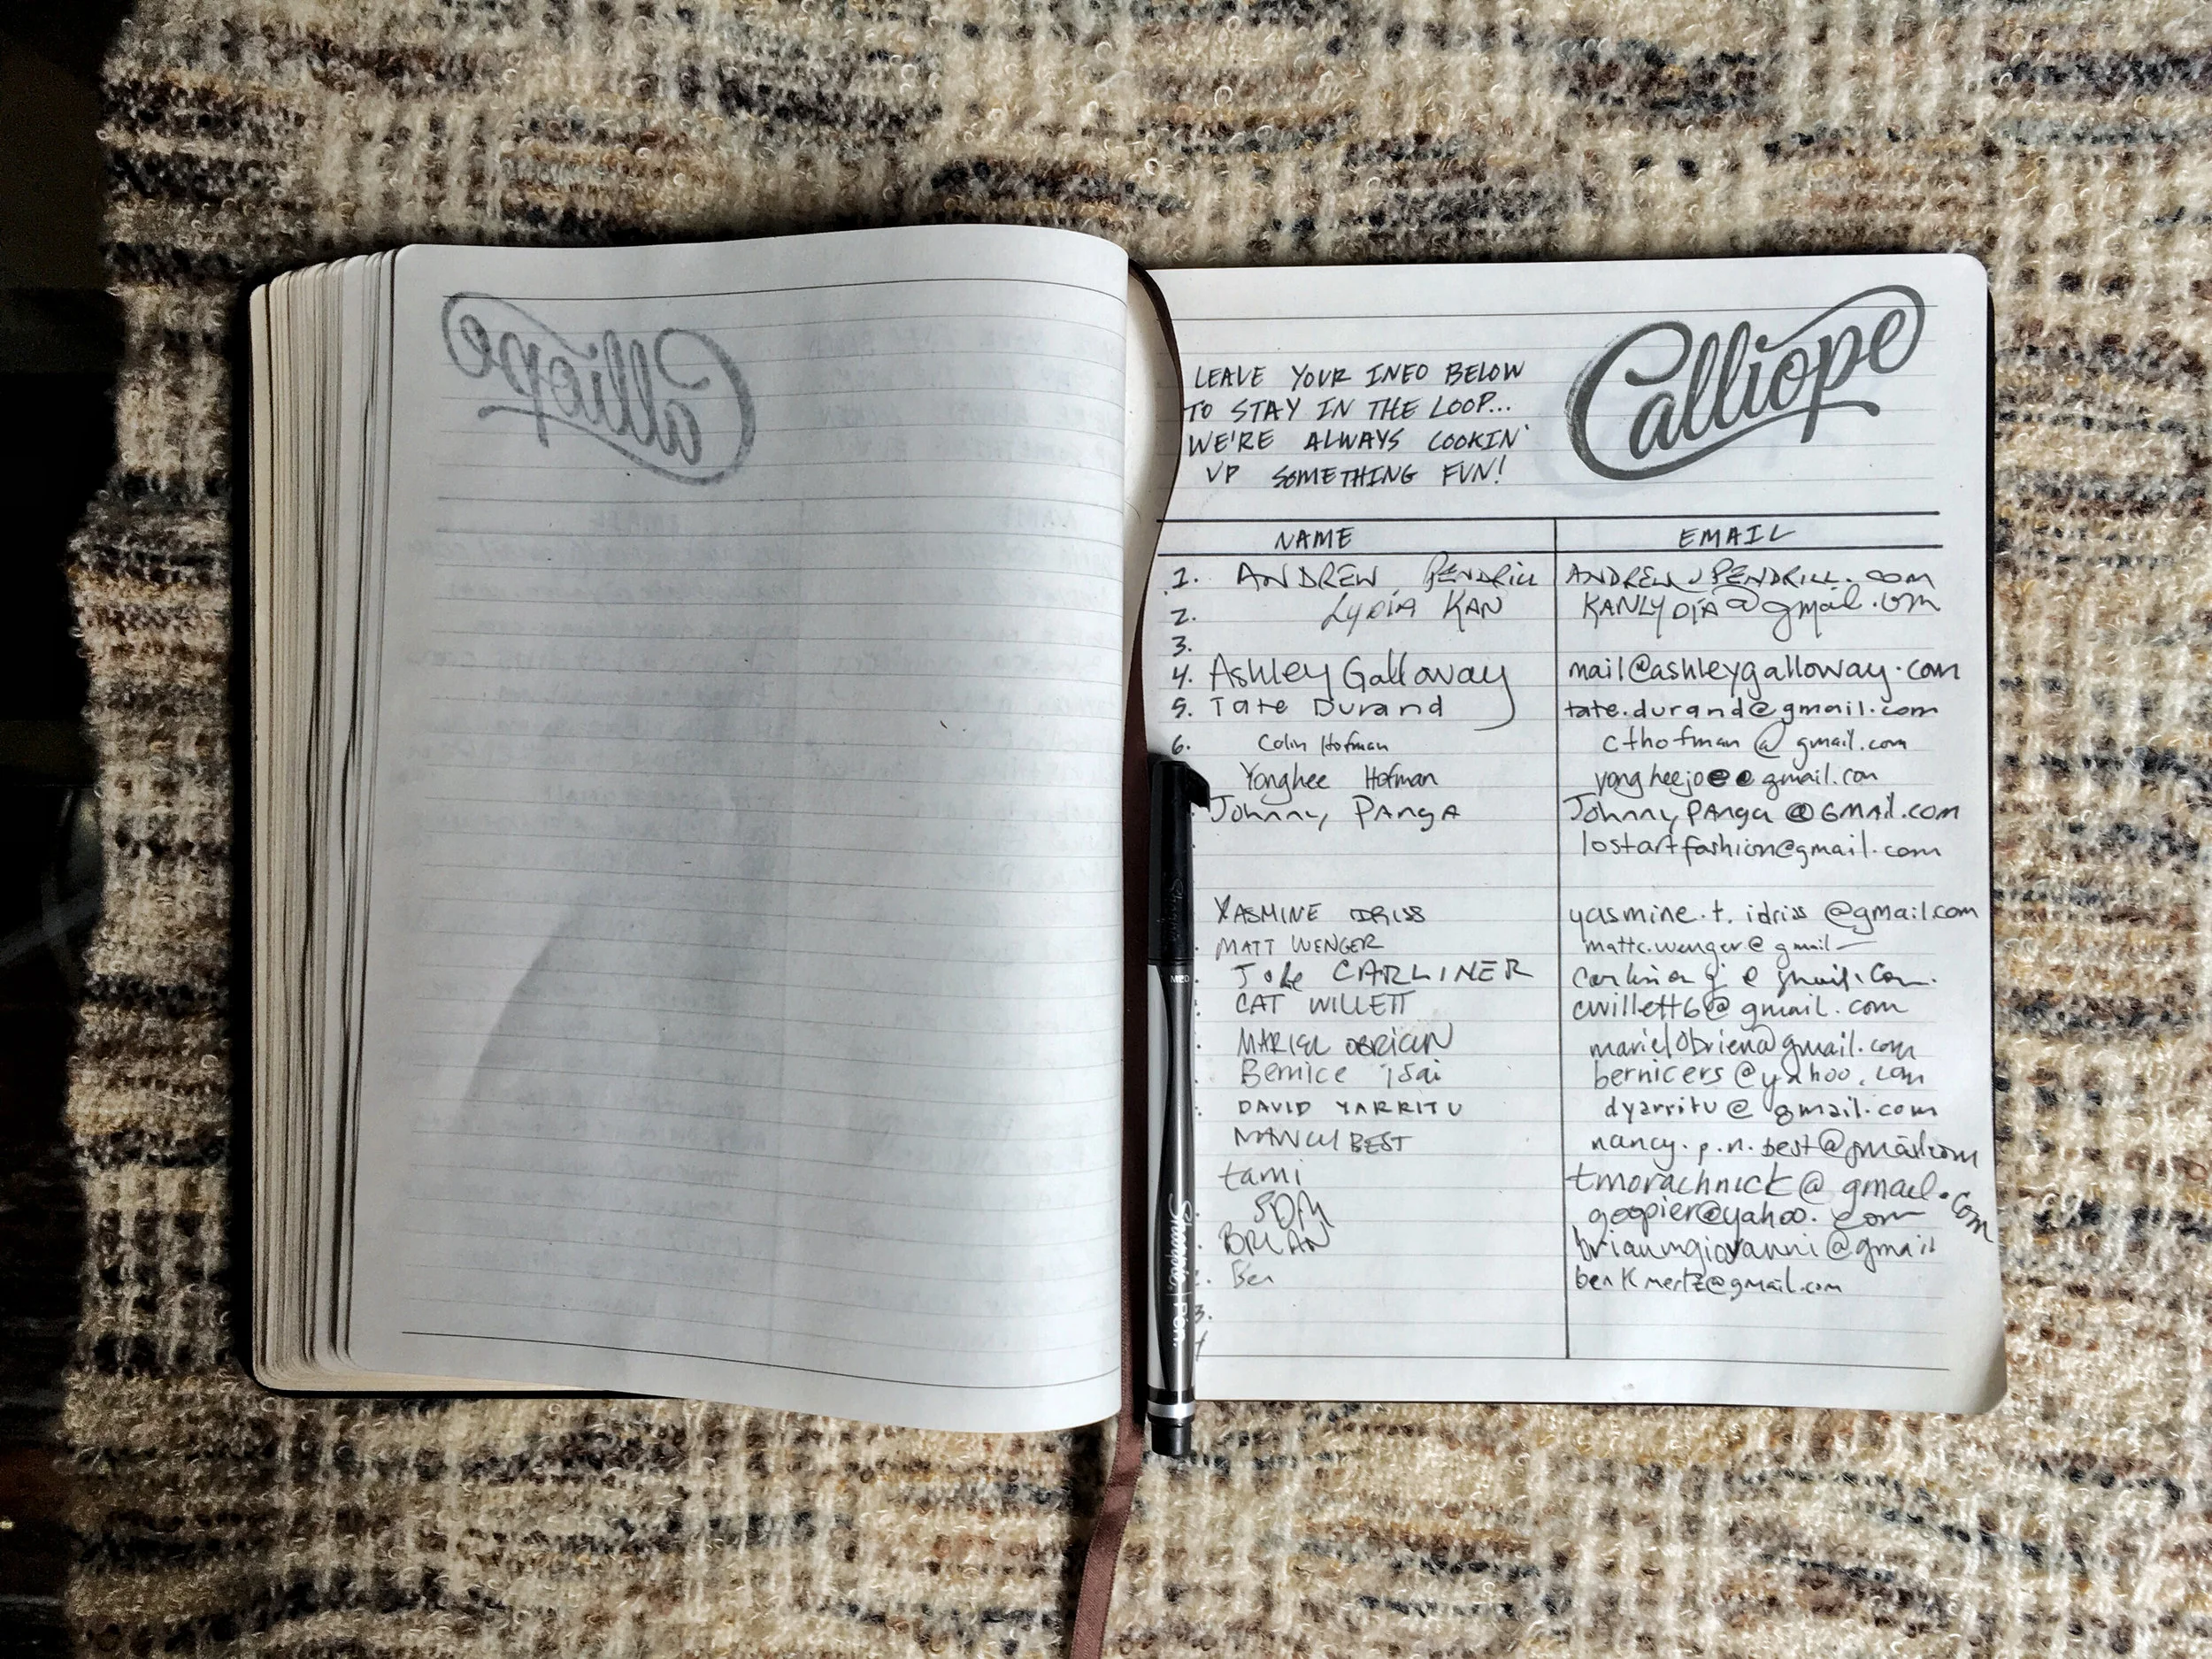 Calliope
LEAVE YOUR INFO BELOW
TO STAY IN THE LOOP...
WE'RE ALWAYS COOKIN'
UP SOMETHING FUN!
Calliope
NAME EMAIL
1. ANDREW PENDRILL ANDREW PENDRILL.COM
2. LYDIA KAN KANLYDIA@gmail.com
3.
4. Ashley Galloway mail@ashleygalloway.com
5. Tate Durand tate.durand@gmail.com
6. Colin Hofman cthofman@gmail.com
Yonghee Hofman gmail.com
Johnny PAngA Johnny PAnga@GMAil.com
lostartfashion@gmail.com
YASMINE IDRISS yasmine.t.idriss@gmail.com
MATT WENGER mattc.wenger@gmail
CARLINER
CAT WILLETT cwillett6@gmail.com
MARIEL OBRIEN marielobrien@gmail.com
Bernice Tsai bernicers@yahoo.com
DAVID YARRITU dyarritu@gmail.com
NANCY BEST nancy.p.n.best@gmail.com
tami tmorachnick@gmail.com
goopier@yahoo.com
BRIAN brianmgiovanni@gmail
Ben benkmertz@gmail.com
3.
4
Sharpie Pen. MED